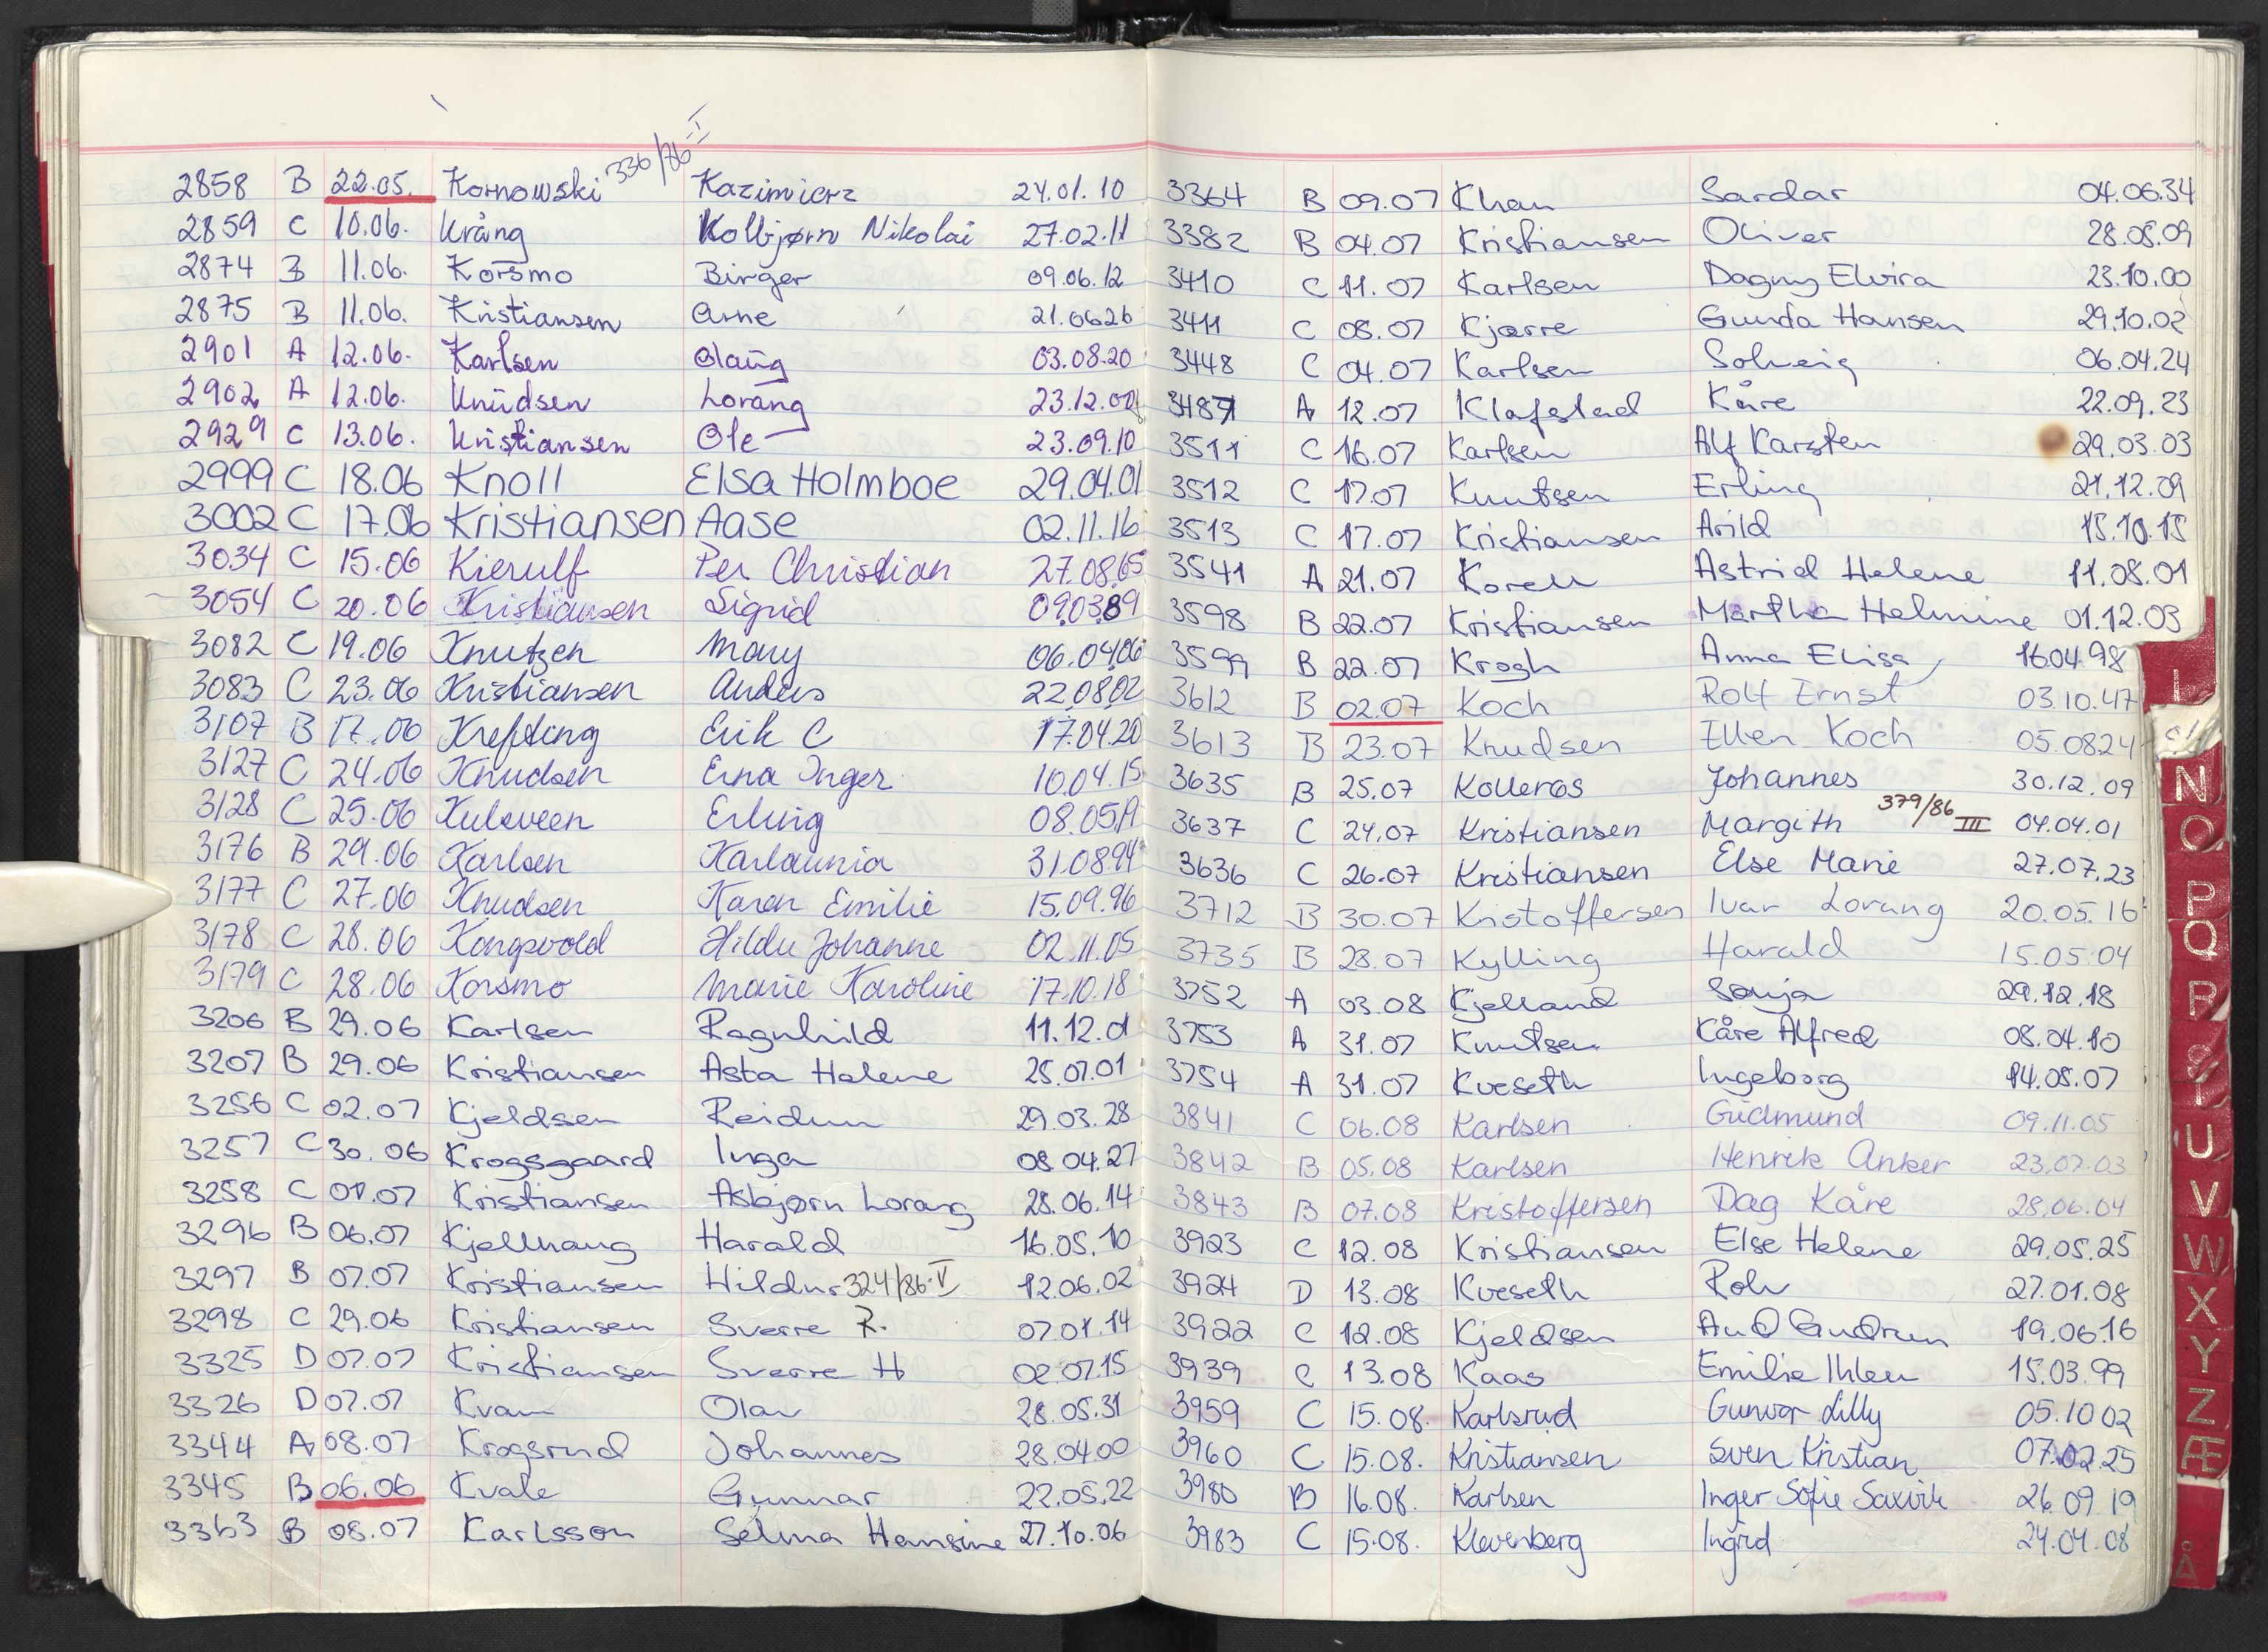 2858 B 22.05. Kornowski 336/86-I Kazimierz 24.01.10
2859 C 10.06. Krång Kolbjørn Nikolai 27.02.11
2874 B 11.06. Korsmo Birger 09.06.12
2875 B 11.06. Kristiansen Arne 21.0626
2901 A 12.06. Karlsen Olaug 03.08.20
2902 A 12.06. Knudsen Lorang 23.12.00
2929 C 13.06. Kristiansen Ole 23.09.10
2999 C 18.06 Knoll Elsa Holmboe 29.04.01
3002 C 17.06 Kristiansen Aase 02.11.16
3034 C 15.06 Kierulf Per Christian 27.08.65
3054 C 20.06 Kristiansen Sigrid 09.03.89
3082 C 19.06 Knutzen Mary 06.04.06
3083 C 23.06 Kristiansen Anders 22.08.02
3107 B 17.06 Krefting Erik C 17.04.20
3127 C 24.06 Knudsen Erna Inger 10.04.15
3128 C 25.06 Kulsveen Erling 08.05.
3176 B 29.06 Karlsen Karlaunia 31.0894
3177 C 27.06 Knudsen Karen Emilie 15.09.96
3178 C 28.06 Kongsvold Hildu Johanne 02.11.05
3179 C 28.06 Korsmo Marie Karoline 17.10.18
3206 B 29.06 Karlsen Ragnhild 11.12.01
3207 B 29.06 Kristiansen Asta Helene 25.07.01
3256 C 02.07 Kjeldsen Reidun 29.03.28
3257 C 30.06 Krogsgaard Inga 08.04.27
3258 C 01.07 Kristiansen Asbjørn Lorang 28.06.14
3296 B 06.07 Kjellhaug Harald 16.05.10
3297 B 07.07 Kristiansen Hildur 324/86-V 12.06.02
3298 C 29.06 Kristiansen Sverre R. 07.01.14
3325 D 07.07 Kristiansen Sverre H 02.07.15
3326 D 07.07 Kvam Olav 28.05.31
3344 A 08.07 Krogsrud Johannes 28.04.00
3345 B 06.06 Kvale Gunnar 22.05.22
3363 B 08.07 Karlsson Selma Hansine 27.10.06
3364 B 09.07 Khan Sardar 04.06.34
3382 B 04.07 Kristiansen Oliver 28.08.09
3410 C 11.07 Karlsen Dagny Elvira 23.10.00
3411 C 08.07 Kjærre Gunda Hansen 29.10.02
3448 C 04.07 Karlsen Solveig 06.04.24
3487 A 12.07 Klafstad Kåre 22.09.23
3511 C 16.07 Karlsen Alf Karsten 29.03.03
3512 C 17.07 Knutsen Erling 21.12.09
3513 C 17.07 Kristiansen Arild 15.10.15
3541 A 21.07 Korell Astrid Helene 11.08.01
3598 B 22.07 Kristiansen Martha Helmine 01.12.03
3599 B 22.07 Krogh Anna Elisa 16.04.98
3612 B 02.07 Koch Rolf Ernst 03.10.47
3613 B 23.07 Knudsen Ellen Koch 05.0824
3635 B 25.07 Kollerøs Johannes 30.12.09
3637 C 24.07 Kristiansen Margith 379/86 III 04.04.01
3636 C 26.07 Kristiansen Else Marie 27.07.23
3712 B 30.07 Kristoffersen Ivar Lorang 20.05.16
3735 B 28.07 Kylling Harald 15.05.04
3752 A 03.08 Kjelland Sonja 29.12.18
3753 A 31.07 Knutsen Kåre Alfred 08.04.10
3754 A 31.07 Kveseth Ingeborg 14.05.07
3841 C 06.08 Karlsen Gudmund 09.11.05
3842 B 05.08 Karlsen Henrik Anker 23.07.03
3843 B 07.08 Kristoffersen Dag Kåre 28.06.04
3923 C 12.08 Kristiansen Else Helene 29.05.25
3924 D 13.08 Kveseth Rolv 27.01.08
3922 C 12.08 Kjeldsen Aud Gudrun 19.06.16
3939 C 13.08 Kaas Emilie Ihlen 15.03.99
3959 C 15.08. Karlsrud Gunvor Lilly 05.10 02
3960 C 15.08. Kristiansen Sven Kristian 07.02.25
3980 B 16.08. Karlsen Inger Sofie Saxvik 26.09 19
3983 C 15.08. Klevenberg Ingrid 24.04.08
L
N
O
P
Q
R
U
V
W
X
Y
Z
Æ
Å